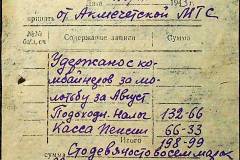 Дата 1943 г.
от Акмечетской МТС
Содержание записи Сумма
Удержано с ком-
байнеров за мо-
лотьбу за Август
Подоходн. Налог 132-66
Касса Пенсии 66-33
Итого 198-99
Сто девяносто восемь